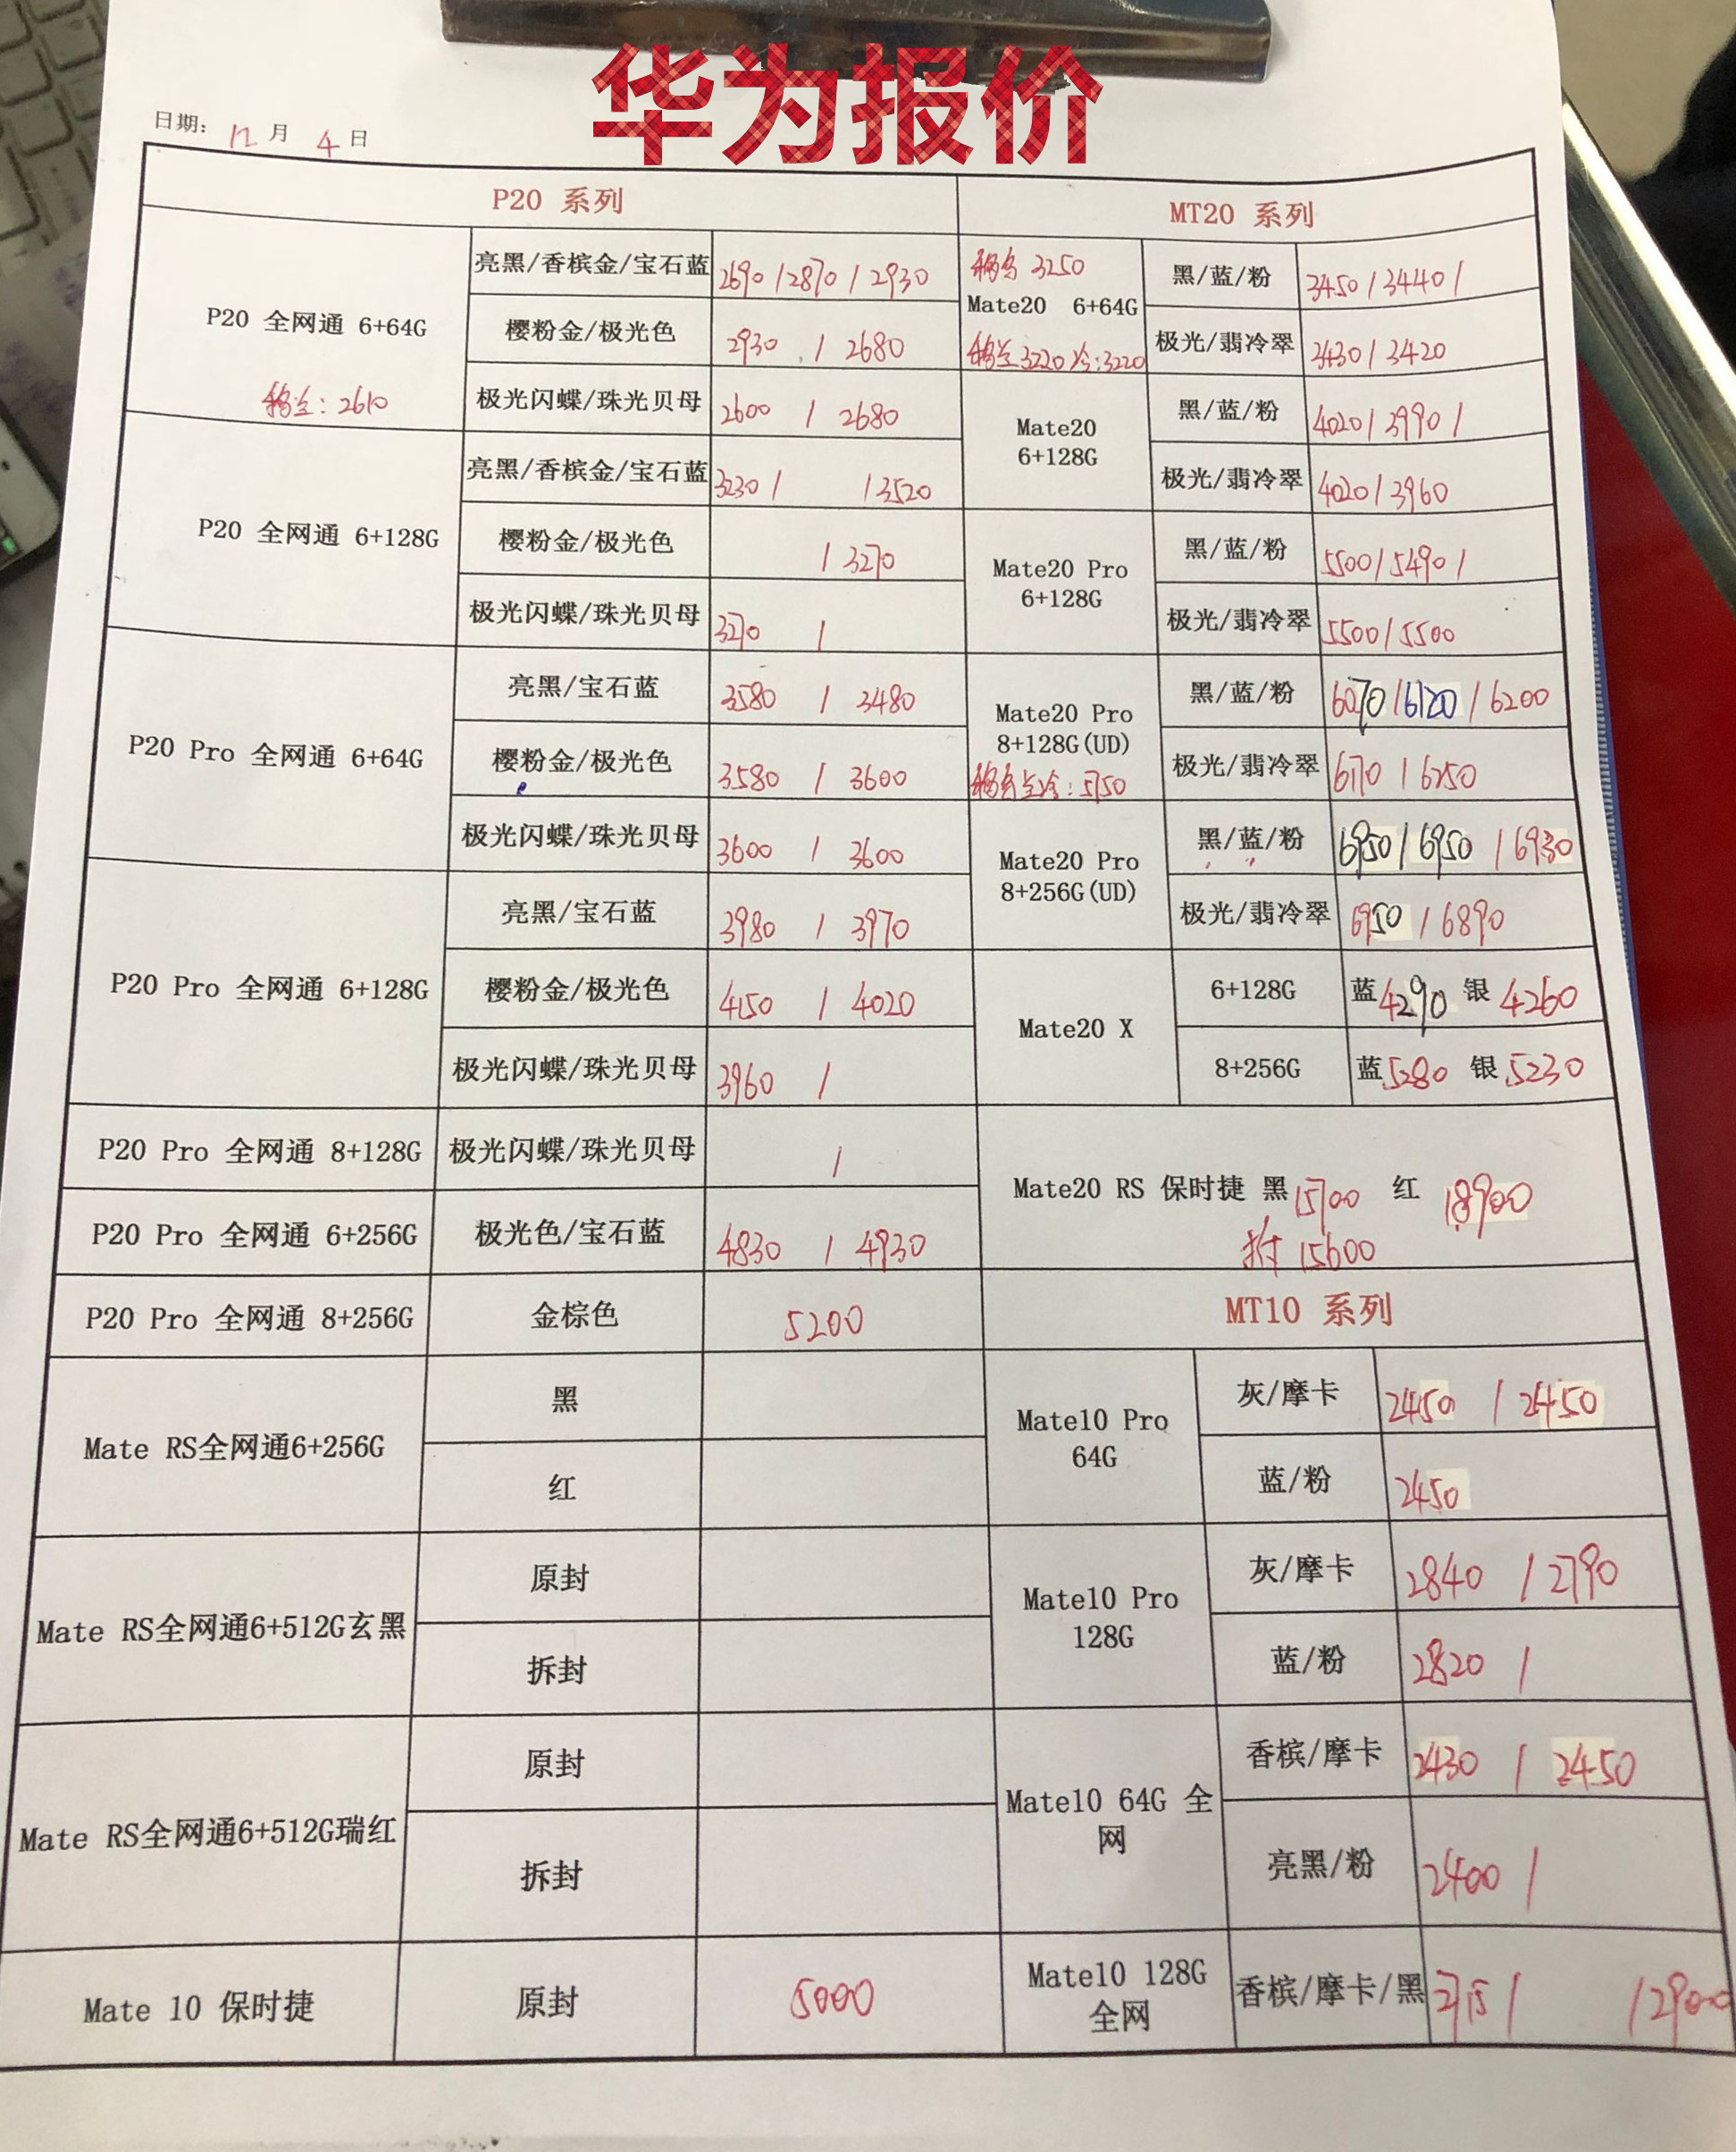 华为报价
日期: 12 月 4 日
P20 系列
P20 全网通 6+64G
亮黑/香槟金/宝石蓝 2690 / 2870 / 2930
樱粉金/极光色 2930 / 2680
极光闪蝶/珠光贝母 2600 / 2680
: 2610
P20 全网通 6+128G
亮黑/香槟金/宝石蓝 3230 / / 3520
樱粉金/极光色 / 3270
极光闪蝶/珠光贝母 3270 /
P20 Pro 全网通 6+64G
亮黑/宝石蓝 3580 / 3480
樱粉金/极光色 3580 / 3600
极光闪蝶/珠光贝母 3600 / 3600
P20 Pro 全网通 6+128G
亮黑/宝石蓝 3980 / 3970
樱粉金/极光色 4150 / 4020
极光闪蝶/珠光贝母 3960 /
P20 Pro 全网通 8+128G 极光闪蝶/珠光贝母 /
P20 Pro 全网通 6+256G 极光色/宝石蓝 4830 / 4930
P20 Pro 全网通 8+256G 金棕色 5200
Mate RS全网通6+256G
黑
红
Mate RS全网通6+512G玄黑
原封
拆封
Mate RS全网通6+512G瑞红
原封
拆封
Mate 10 保时捷 原封 5000
MT20 系列
3250
Mate20 6+64G
3220 冷:3220
黑/蓝/粉 3450 / 3440 /
极光/翡冷翠 3430 / 3420
Mate20
6+128G
黑/蓝/粉 4020 / 3990 /
极光/翡冷翠 4020 / 3960
Mate20 Pro
6+128G
黑/蓝/粉 5500 / 5490 /
极光/翡冷翠 5500 / 5500
Mate20 Pro
8+128G(UD)
: 5750
黑/蓝/粉 6070 / 6120 / 6200
极光/翡冷翠 6170 / 6250
Mate20 Pro
8+256G(UD)
黑/蓝/粉 6950 / 6950 / 6930
极光/翡冷翠 6950 / 6890
Mate20 X
6+128G 蓝 4290 银 4260
8+256G 蓝 5280 银 5230
Mate20 RS 保时捷 黑 15700 红 18900
拆 15600
MT10 系列
Mate10 Pro
64G
灰/摩卡 2450 / 2450
蓝/粉 2450
Mate10 Pro
128G
灰/摩卡 2840 / 2790
蓝/粉 2820 /
Mate10 64G 全
网
香槟/摩卡 2430 / 2450
亮黑/粉 2400 /
Mate10 128G
全网
香槟/摩卡/黑 / / 2900